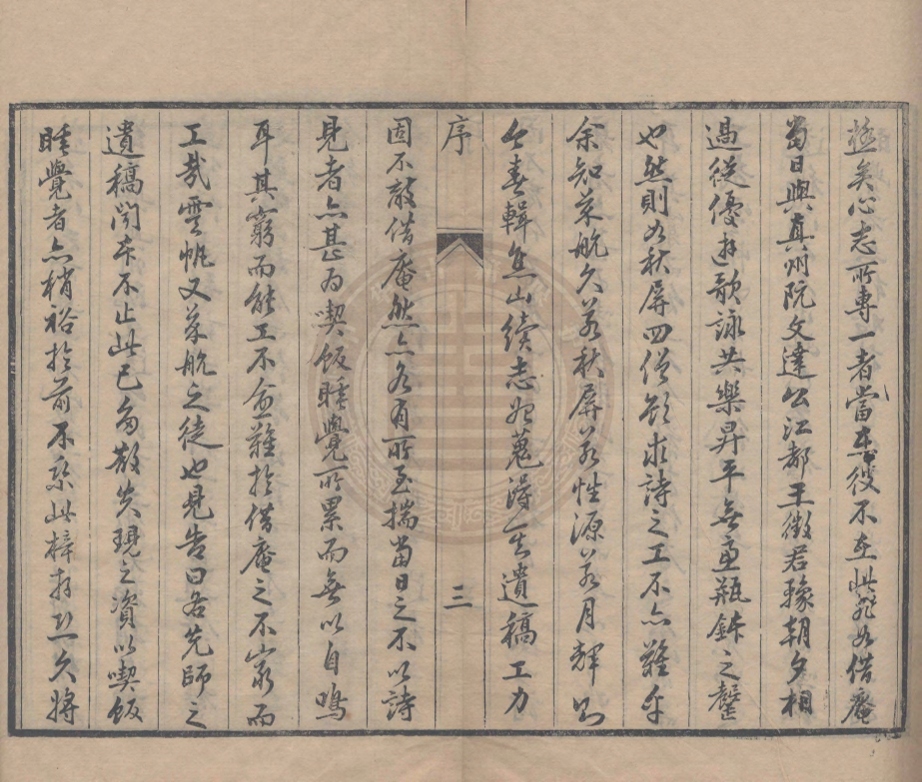 極矣心志所專一者當在彼不在此非如借庵
當日與真州阮文達公江都王徵君豫朝夕相
過從優遊歌詠共樂昇平無慮瓶鉢之罄
也然則如秋屏四僧欲求詩之工不亦難乎
余知茶航久若秋屏若性源若月輝則
今春輯焦山續志始蒐得一生遺稿工力
序
三
固不敵借庵然亦各有所至揣當日之不以詩
見者亦甚為喫飯睡覺所累而無以自鳴
耳其窮而能工不愈難於借庵之不窮而
工哉雲帆又茶航之徒也見告曰吾先師之
遺稿聞本不止此已多散失現之資以喫飯
睡覺者亦稍裕於前不亟此梓存恐久將